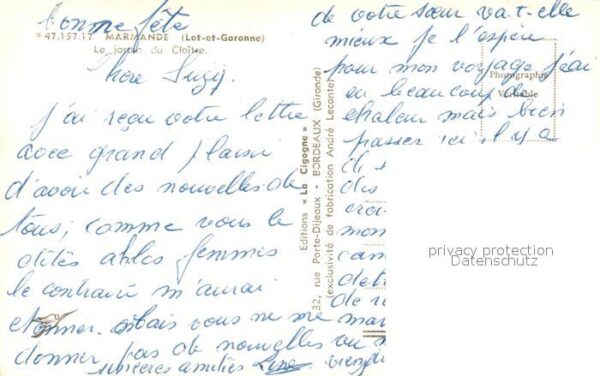 bonne fête
47.157.17 MARMANDE (Lot-et-Garonne)
Le jardin du Cloître.
hère Suzy.
j'ai reçu votre lettre
avec grand plaisir
d'avoir des nouvelles de
tous, comme vous le
dités
le contraire m'aurai
etonner. Mais vous ne me
donner pas de nouvelles
sincères amitiés
Editions « La Cigogne »
32, rue Porte-Dijeaux - BORDEAUX (Gironde)
(exclusivité de fabrication André Leconte)
de votre sœur va-t-elle
mieux je l'espère
pour mon voyage j'ai
eu beaucoup de
chaleur mais bien
passer ici, il y a
de
des
mon
de
mar
Photographie
Véritable
privacy protection
Datenschutz